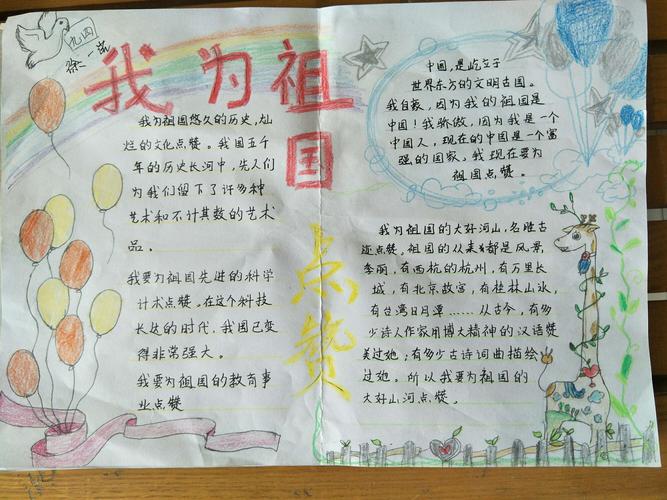 九四
徐
我为祖国
点赞
我为祖国悠久的历史,灿
烂的文化点赞。我国五千
年的历史长河中,先人们
为我们留下了许多种
艺术和不计其数的艺术
品。
我要为祖国先进的科学
计术点赞。在这个科技
长达的时代,我国已变
得非常强大。
我要为祖国的教育事
业点赞
中国,是屹立于
世界东方的文明古国。
我自豪,因为我的祖国是
中国!我骄傲,因为我是一个
中国人,现在的中国是一个富
强的国家。我现在要为
祖国点赞。
我为祖国的大好河山,名胜古
迹点赞,祖国的从来都是风景
季丽,有西杭的杭州,有万里长
城,有北京故宫,有桂林山水,
有台湾日月潭……从古今,有多
少诗人作家用博大精神的汉语赞
美过她;有多少古诗词曲描绘
过她。所以我要为祖国的
大好山河点赞。